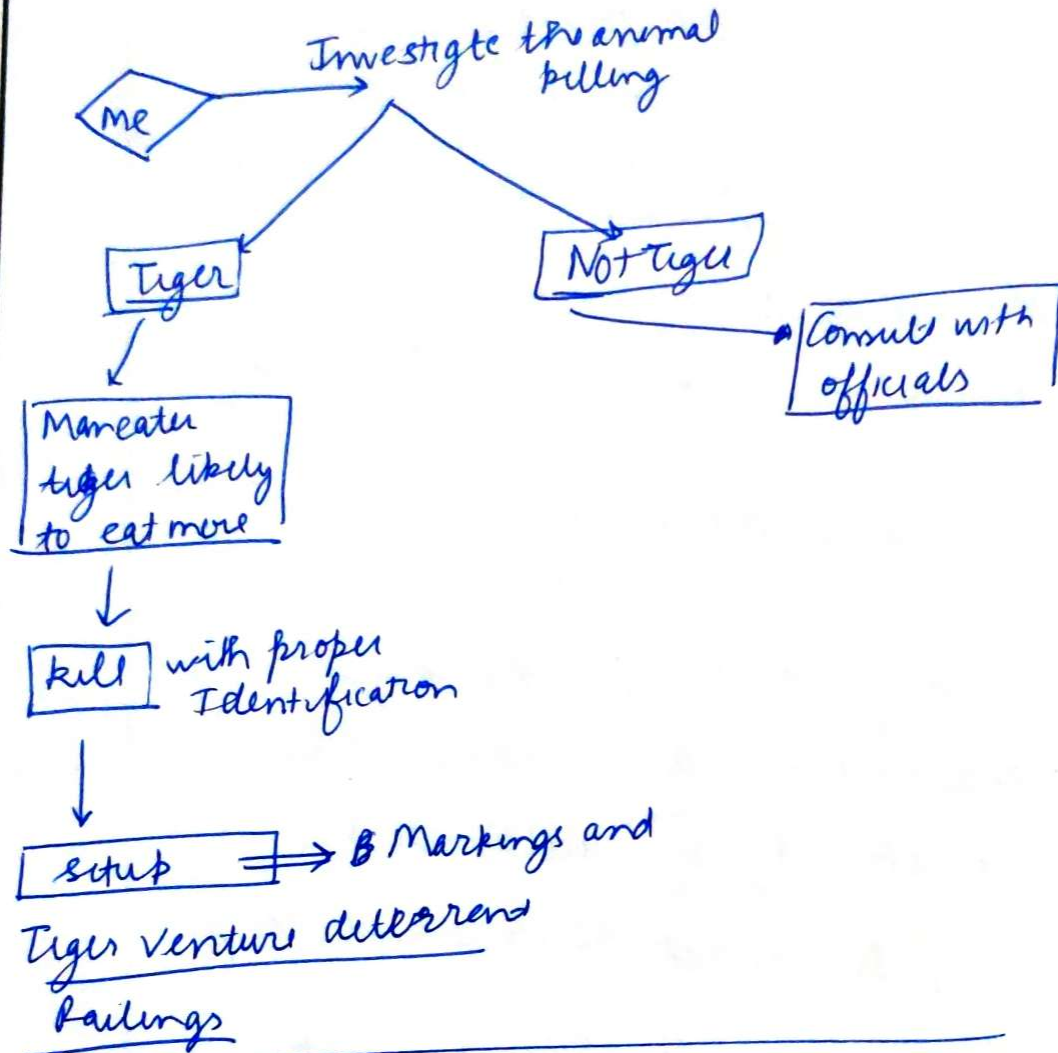 Investigte the animal
killing
me
Tiger
Not Tiger
Consult with
officials
Maneater
tiger likely
to eat more
kill with proper
Identification
setup Markings and
Tiger venture deterrend
Railings